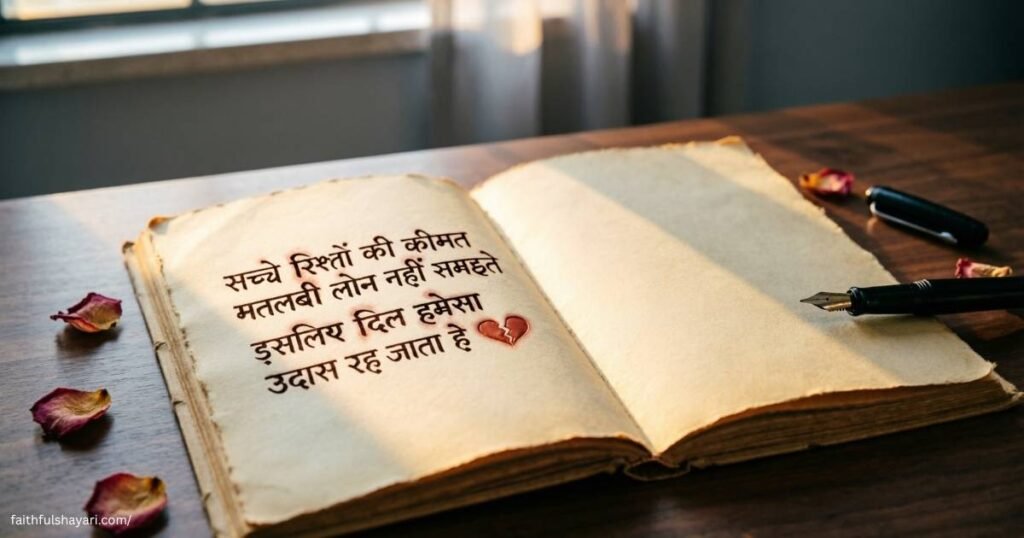 सच्चे रिश्तों की कीमत
मतलबी लोन नहीं समझते
ड़सलिए दिल हमेसा
उदास रह जाता हे
faithfulshayari.com/